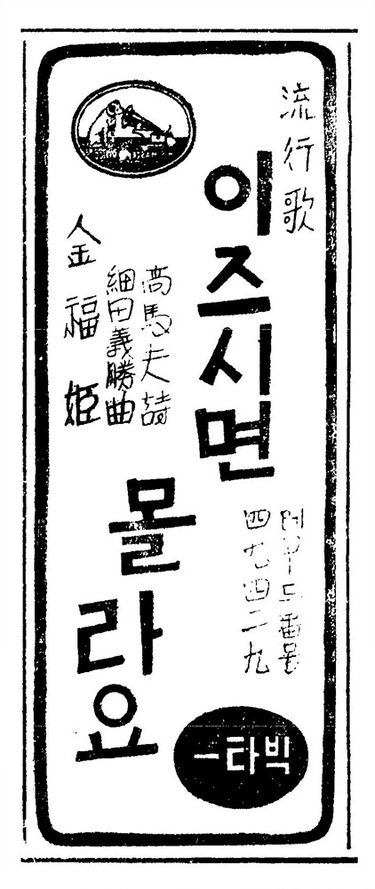 流行歌
이즈시면
몰라요
高馬夫詩
細田義勝曲
金福姬
레코ー드番号
四九四二九
빅타ー